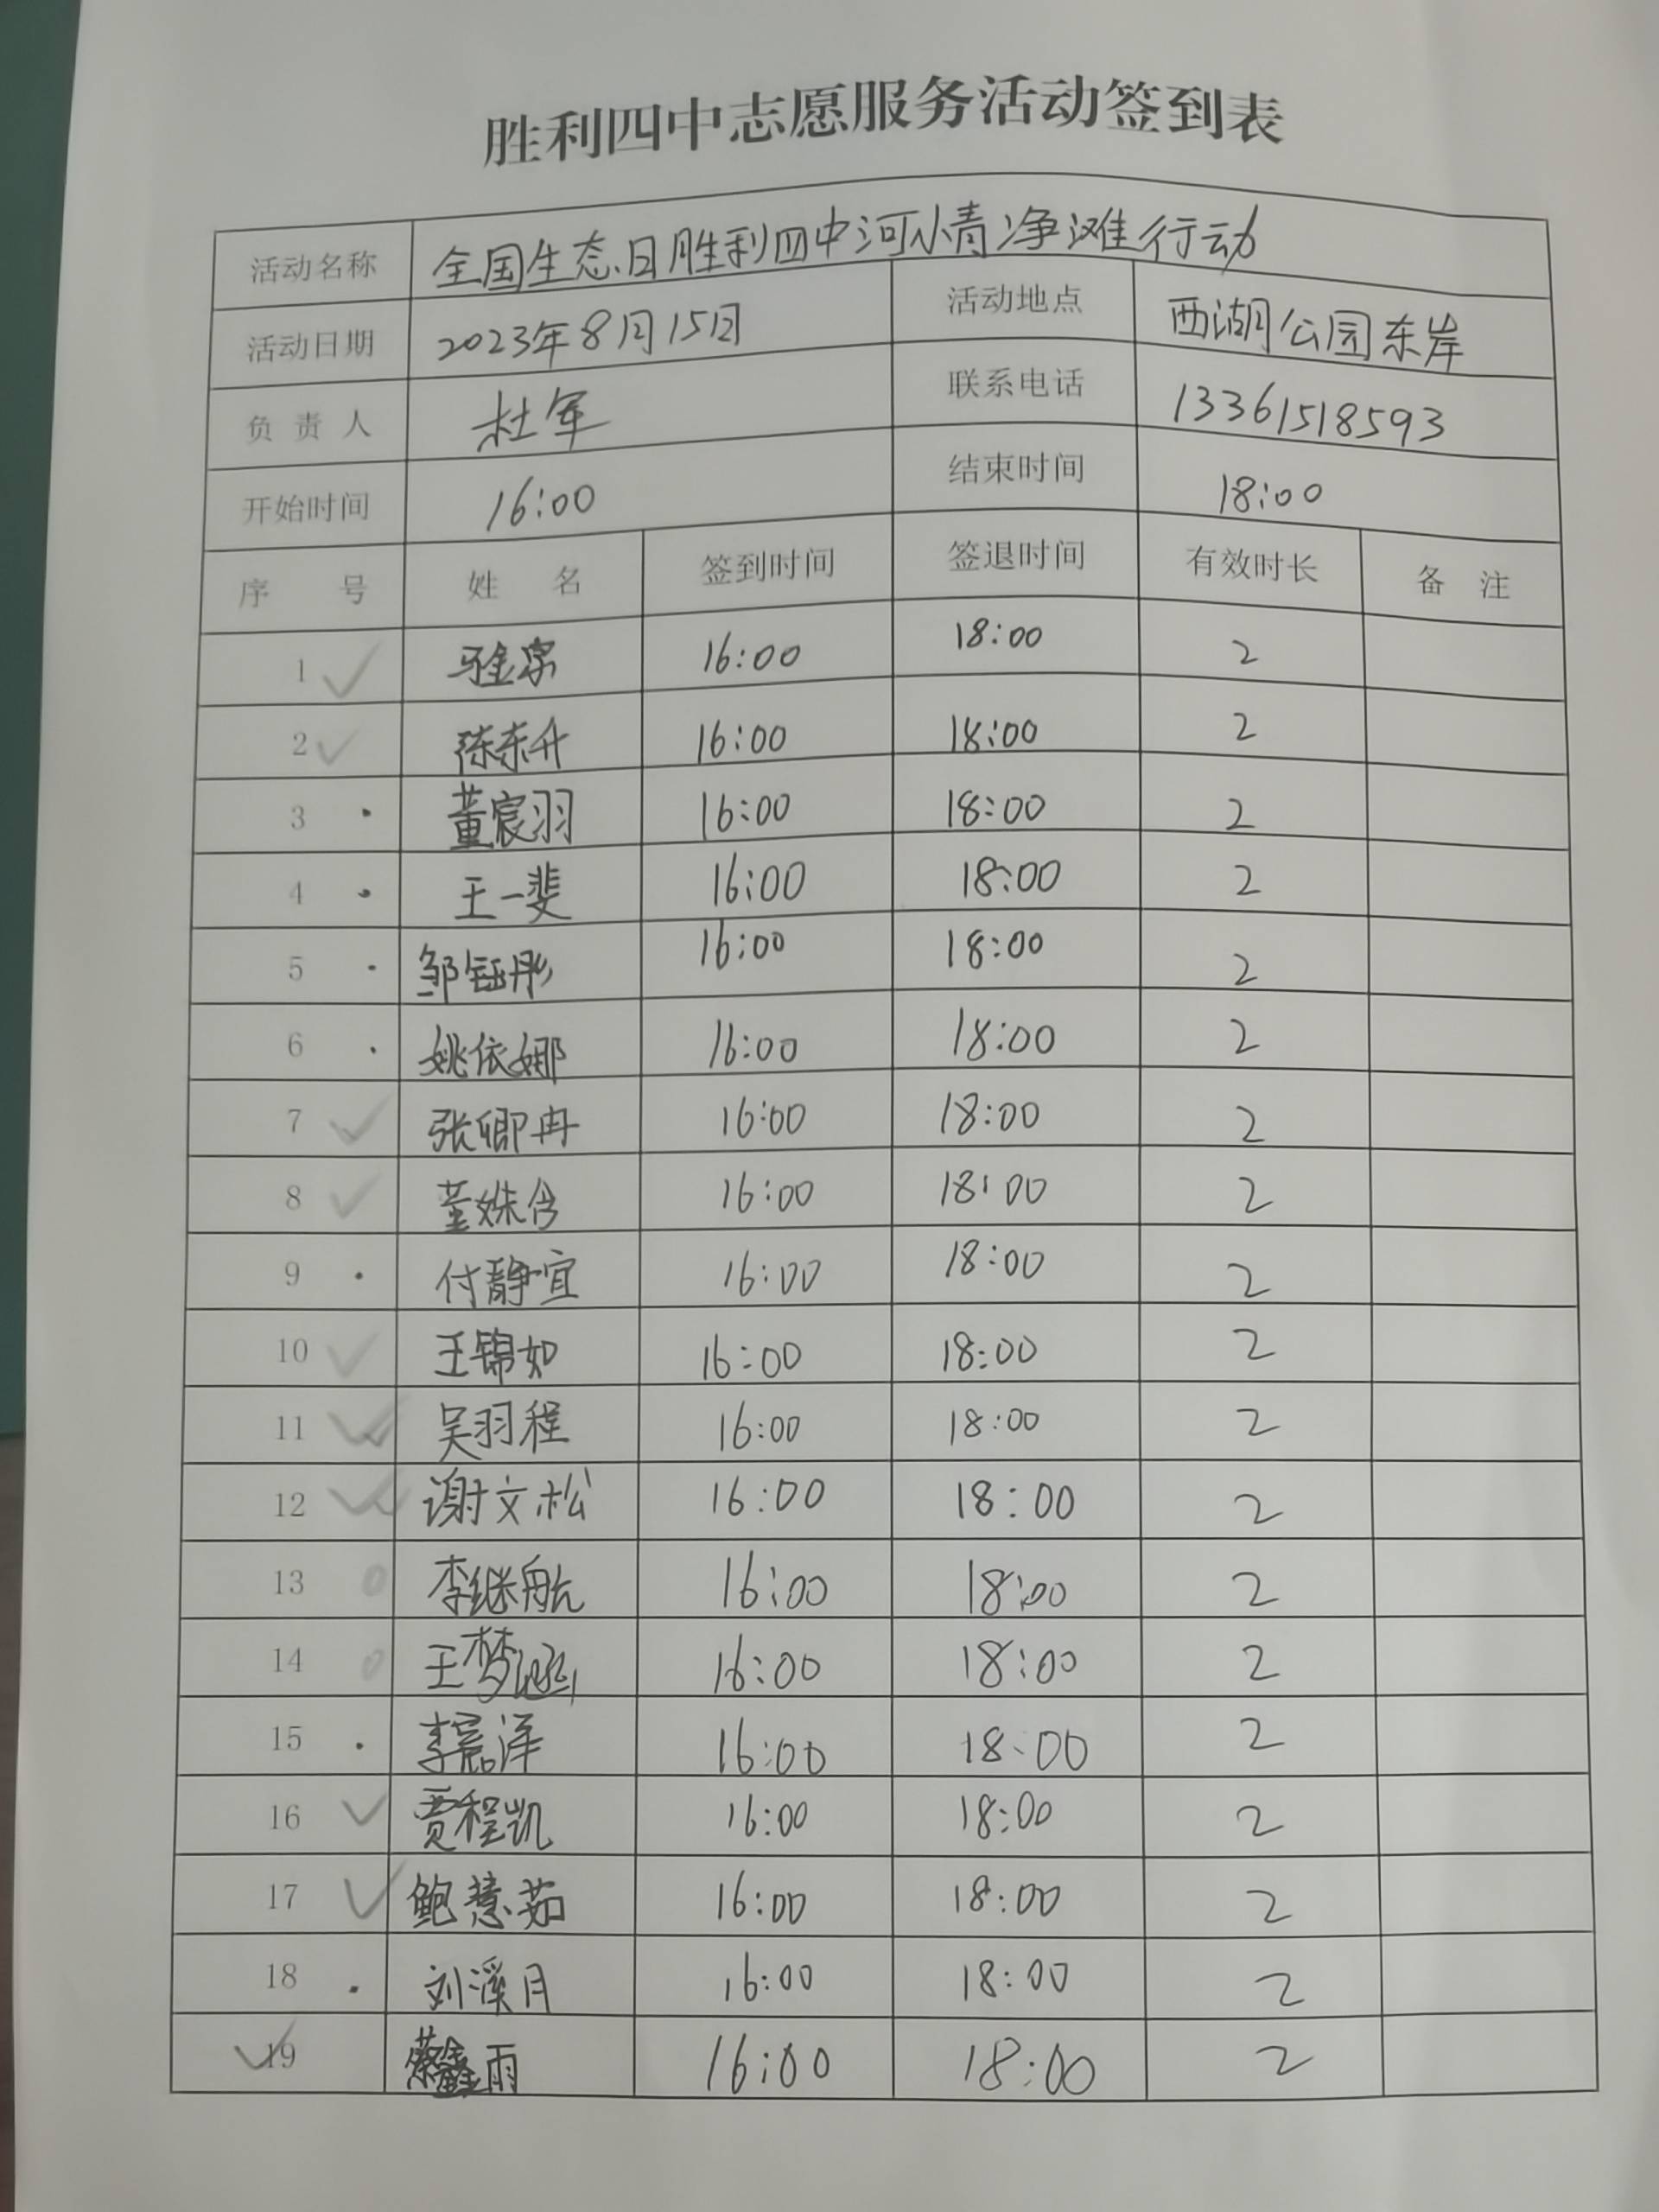 胜利四中志愿服务活动签到表
活动名称 全国生态日胜利四中河小青净滩行动
活动日期 2023年8月15日 活动地点 西湖公园东岸
负责人 杜军 联系电话 13361518593
开始时间 16:00 结束时间 18:00
序号 姓名 签到时间 签退时间 有效时长 备注
1 16:00 18:00 2
2 陈东升 16:00 18:00 2
3 董宸羽 16:00 18:00 2
4 王一斐 16:00 18:00 2
5 邹钰彤 16:00 18:00 2
6 姚依娜 16:00 18:00 2
7 张卿冉 16:00 18:00 2
8 董姝含 16:00 18:00 2
9 付静宜 16:00 18:00 2
10 王锦如 16:00 18:00 2
11 吴羽程 16:00 18:00 2
12 谢文松 16:00 18:00 2
13 李继航 16:00 18:00 2
14 王梦涵 16:00 18:00 2
15 16:00 18:00 2
16 贾程凯 16:00 18:00 2
17 鲍慧茹 16:00 18:00 2
18 刘溪月 16:00 18:00 2
19 蔡鑫雨 16:00 18:00 2